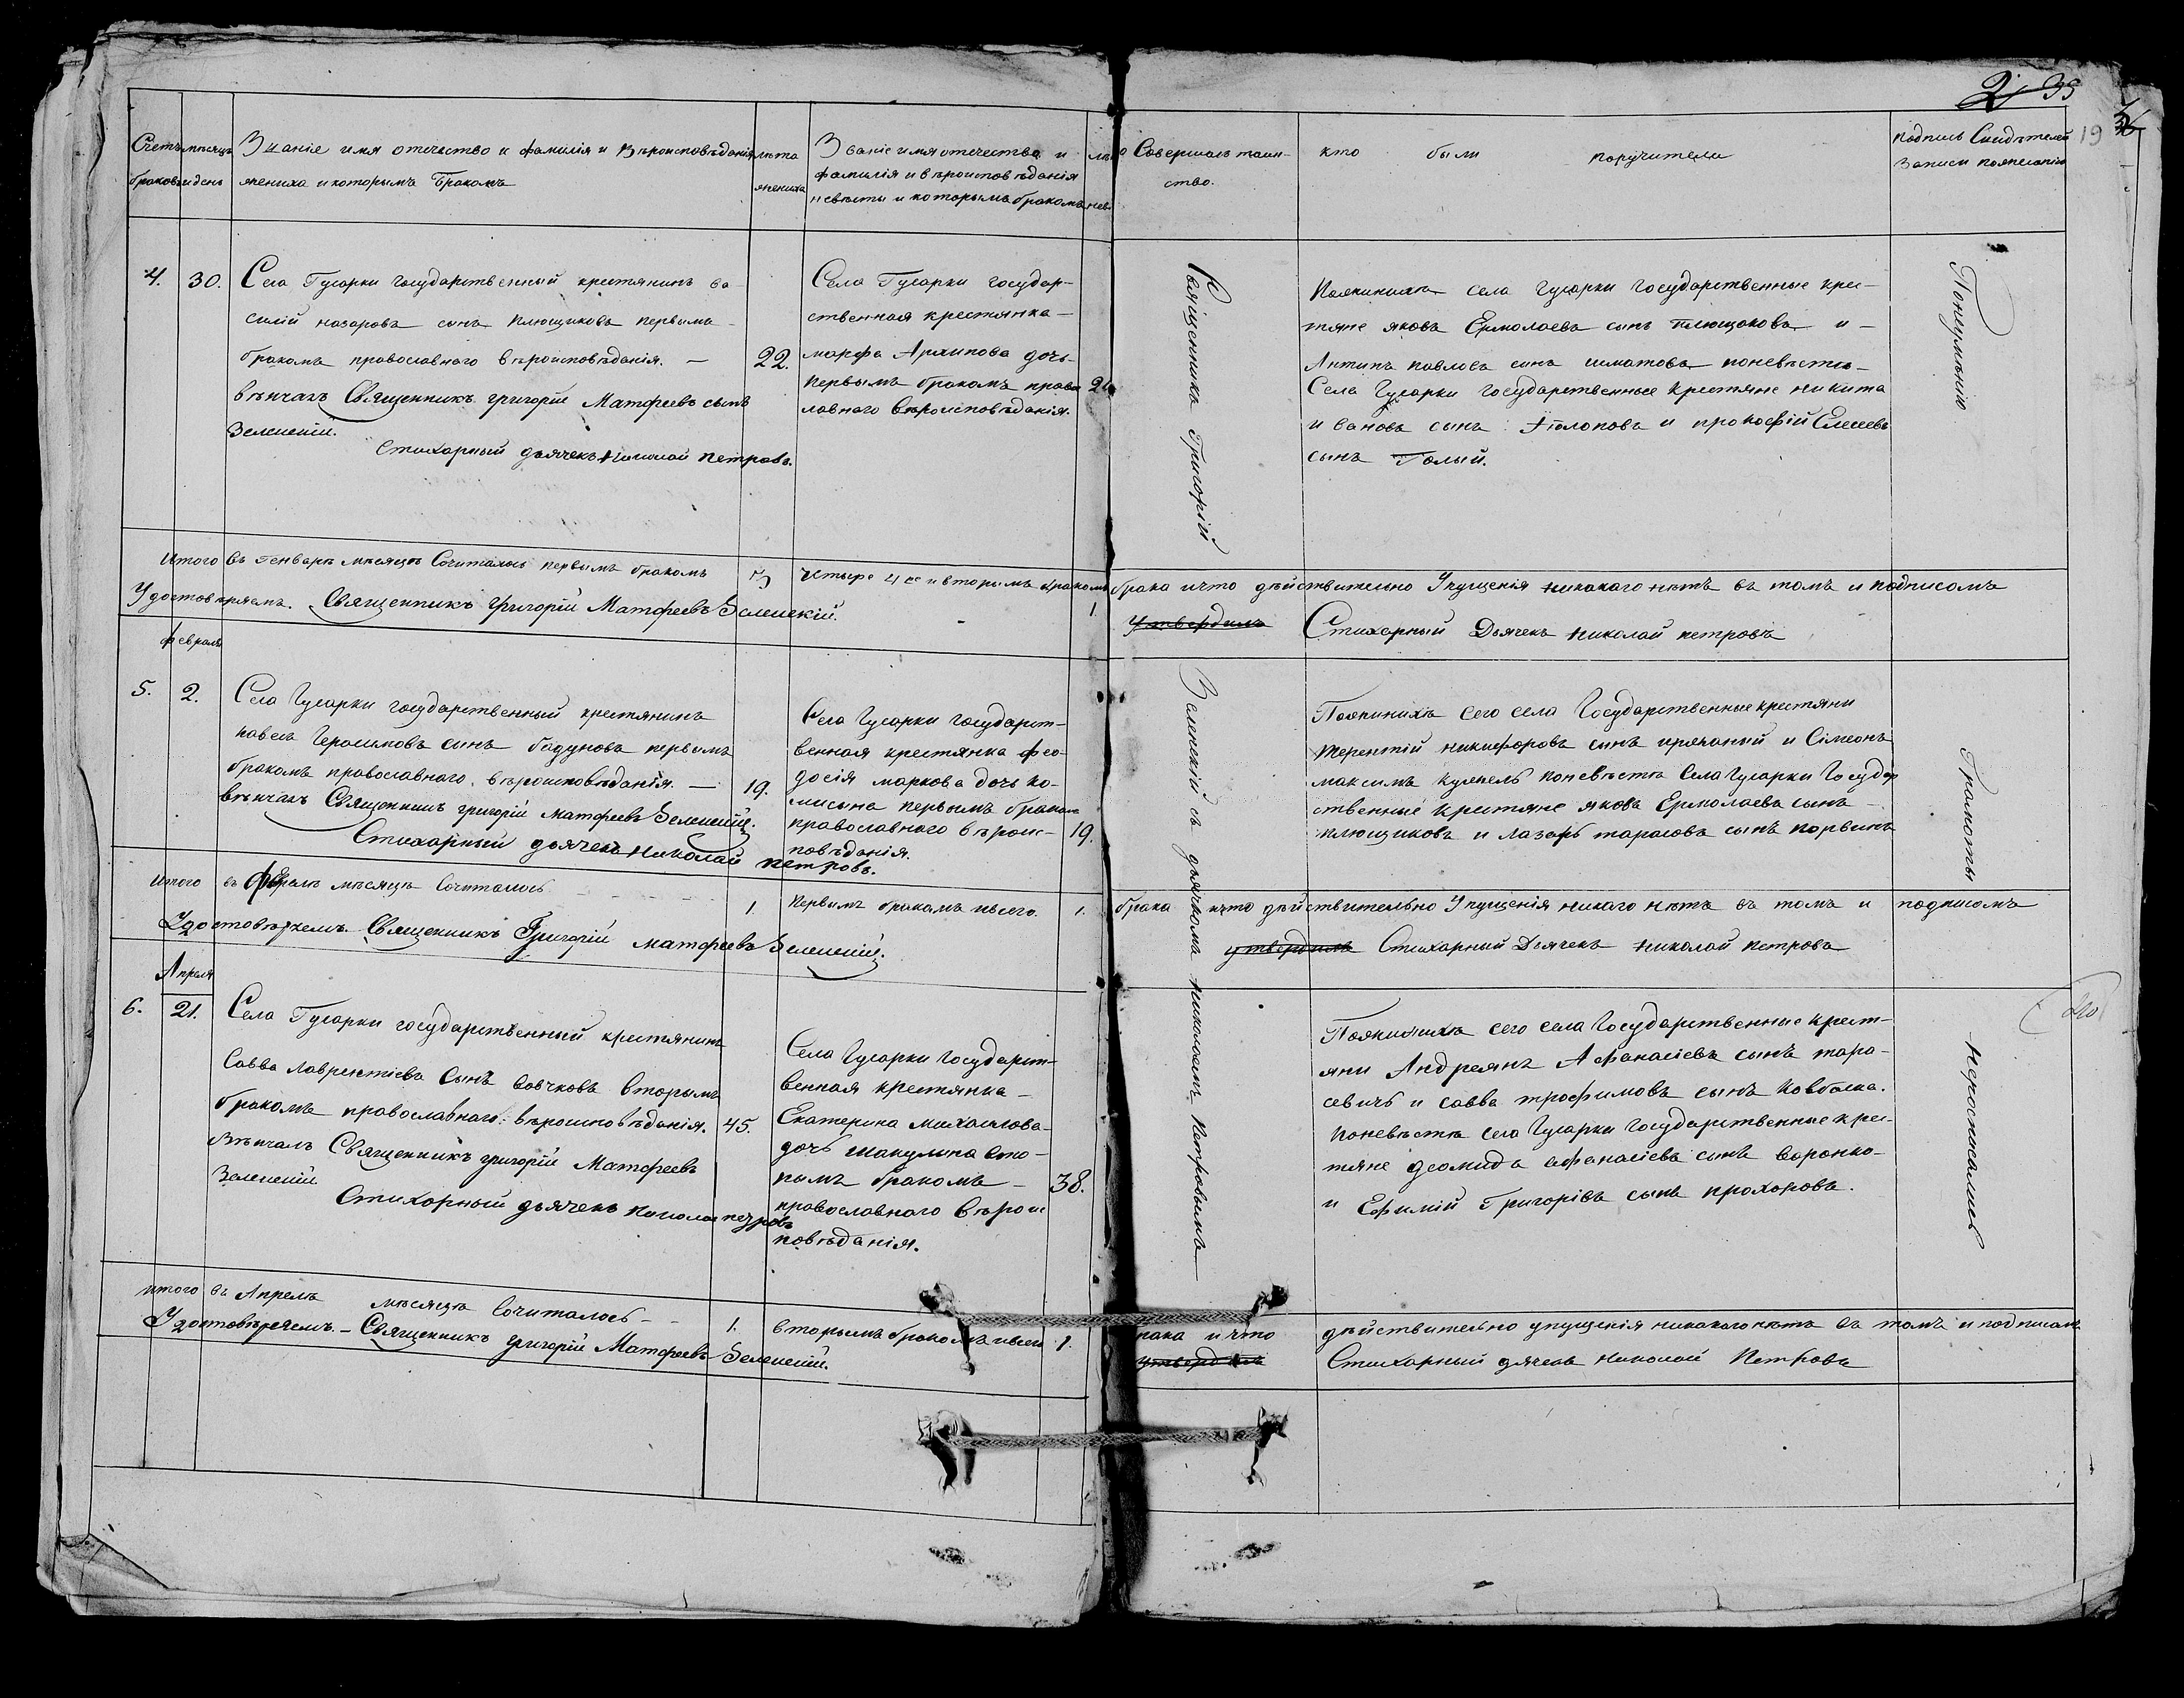 2 35
19
Счетъ браковъ
мѣсяцъ и день
Званіе имя отечество и фамилія и Вѣроисповѣданія
жениха и которымъ Бракомъ
лѣта
жениха
Званіе имя отечество и
фамилія и вѣроисповѣданія
невѣсты и которымъ бракомъ
Совершалъ таин-
ство.
кто были поручители
подпись Свидѣтелей
Записи пожеланію
4. 30.
Села Гусарки государственный крестянинъ ва-
силій назаровъ сынъ плющиковъ первымъ
бракомъ православнаго вѣроисповѣданія. —
22.
вѣнчалъ Священникъ григорій Матфеевъ сынъ
Зеленскій.
Стихарный дьячекъ Николай петровъ.
Села Гусарки государ-
ственная крестянка —
марфа Архипова дочь
первымъ бракомъ право
славнаго вѣроисповѣданія.
Пожениха села гусарки государственные крес-
тяне яковъ Ермолаевъ сынъ плющаковъ и —
Антипъ павловъ сынъ шматовъ поневѣсты —
Села Гусарки государственные крестяне никита
ивановъ сынъ и прокофій Елесеевъ
сынъ Голый.
Итого въ Генваре мѣсяцѣ Сочиталось первымъ бракомъ
3
четыре 4 се и вторымъ бракомъ
1
брака ичто дѣйствительно Упущенія никакаго нѣтъ въ томъ и подписомъ
Удостовѣряемъ. Священникъ григорій Матфеевъ Зеленскій.
утвердилъ Стихарный Дьячекъ николай петровъ
февраля
5. 2.
Села Гусарки государственный крестянинъ
павелъ Герасимовъ сынъ бадуновъ первымъ
бракомъ православнаго вѣроисповѣданія. —
19.
вѣнчалъ Священникъ григорій матфеевъ Зеленскій.
Стихарный дьячекъ николай петровъ.
Села Гусарки государст-
венная крестянка фео-
досія маркова дочь ко-
мисына первымъ бракомъ
православнаго вѣроис-
повѣданія.
19.
Пожениха сего села Государственные крестяни
терентій никифоровъ сынъ и Сімеонъ
максимъ поневѣстѣ Села гусарки Государ
ственные крестяне яковъ Ермолаевъ сынъ —
плющиковъ и лазарь тарасовъ сынъ
итого въ феврале мѣсяцѣ Сочиталось
1.
первымъ бракомъ ивсего.
1.
брака ичто дѣйствительно Упущенія никаго нѣтъ въ томъ и подписомъ
Удостовѣряемъ Священникъ Григорій матфеевъ Зеленскій.
утвердилъ Стихарный Дьячекъ николай петровъ
Апреля
6. 21.
Села Гусарки государственный крестянинъ
Савва лаврентіевъ Сынъ вовчковъ вторымъ
бракомъ православнаго: вѣроисповѣданія.
45.
вѣнчалъ Священникъ григорій Матфеевъ
Зеленскій
Стихарный дьячекъ николай петровъ
Села Гусарки государст-
венная крестянка —
Екатерина михаилова
дочь макулина вто-
рымъ бракомъ —
38.
православнаго вѣроис
повѣданія.
Пожениха сего села Государственные крест-
яни Андреянъ Афанасіевъ сынъ тара-
севичъ и савва трофимовъ сынъ ковбаса.
поневѣстѣ села Гусарки государственные крес-
тяне деомидъ афанасіевъ сынъ воронко-
и Ефимій Григорівъ сынъ прохоровъ.
итого въ Апреле мѣсяцѣ Сочиталось —
1.
вторымъ бракомъ ивсего
1.
рака ичто дѣйствительно упущенія никакого нѣтъ въ томъ и подписомъ
Удостовѣряемъ. — Священникъ григорій Матфеевъ Зеленскій.
утвердилъ Стихарный дячекъ николай Петровъ
Священникъ Григорій
Зеленскій съ дьячкомъ николаемъ петровымъ
Понеумьнію
Грамоты
Нерасписались